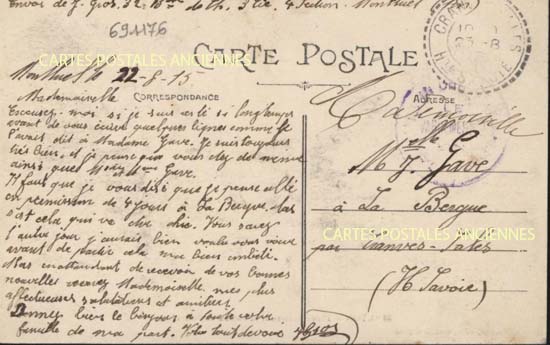 Envoi de J. Gros. 32e Bon de Ch. 3e Cie. 4 Section - Montluel (Ain)
691176
CARTE POSTALE
CARTES POSTALES ANCIENNES
Montluel le 22-8-15
CORRESPONDANCE
ADRESSE
Mademoiselle
Excusez-moi si je suis resté si longtemps
avant de vous écrire quelques lignes comme je
l'avais dit à Madame Gave. Je suis toujours
très bien, et je pense que vous etes de meme
ainsi que
Il faut que je vous dise que je pense allé
en permission de 4 jours à La Bergue,
c'est cela qui va etre chic. Vous savez
l'autre jour j'aurais bien voulu vous voir
avant de partir cela ma bien embêté.
Mais en attendant de recevoir de vos bonnes
nouvelles recevez Mademoiselle, mes plus
affectueuses salutations et amitiés.
Donnez bien le bonjour à toute votre
famille de ma part.
J Gros
Mademoiselle
Melle J. Gave
à La Bergue
par Cranves-Sales
(Hte Savoie)
CRANVES-SALES
HTE SAVOIE
CARTES POSTALES ANCIENNES
CARTES POSTALES ANCIENNES